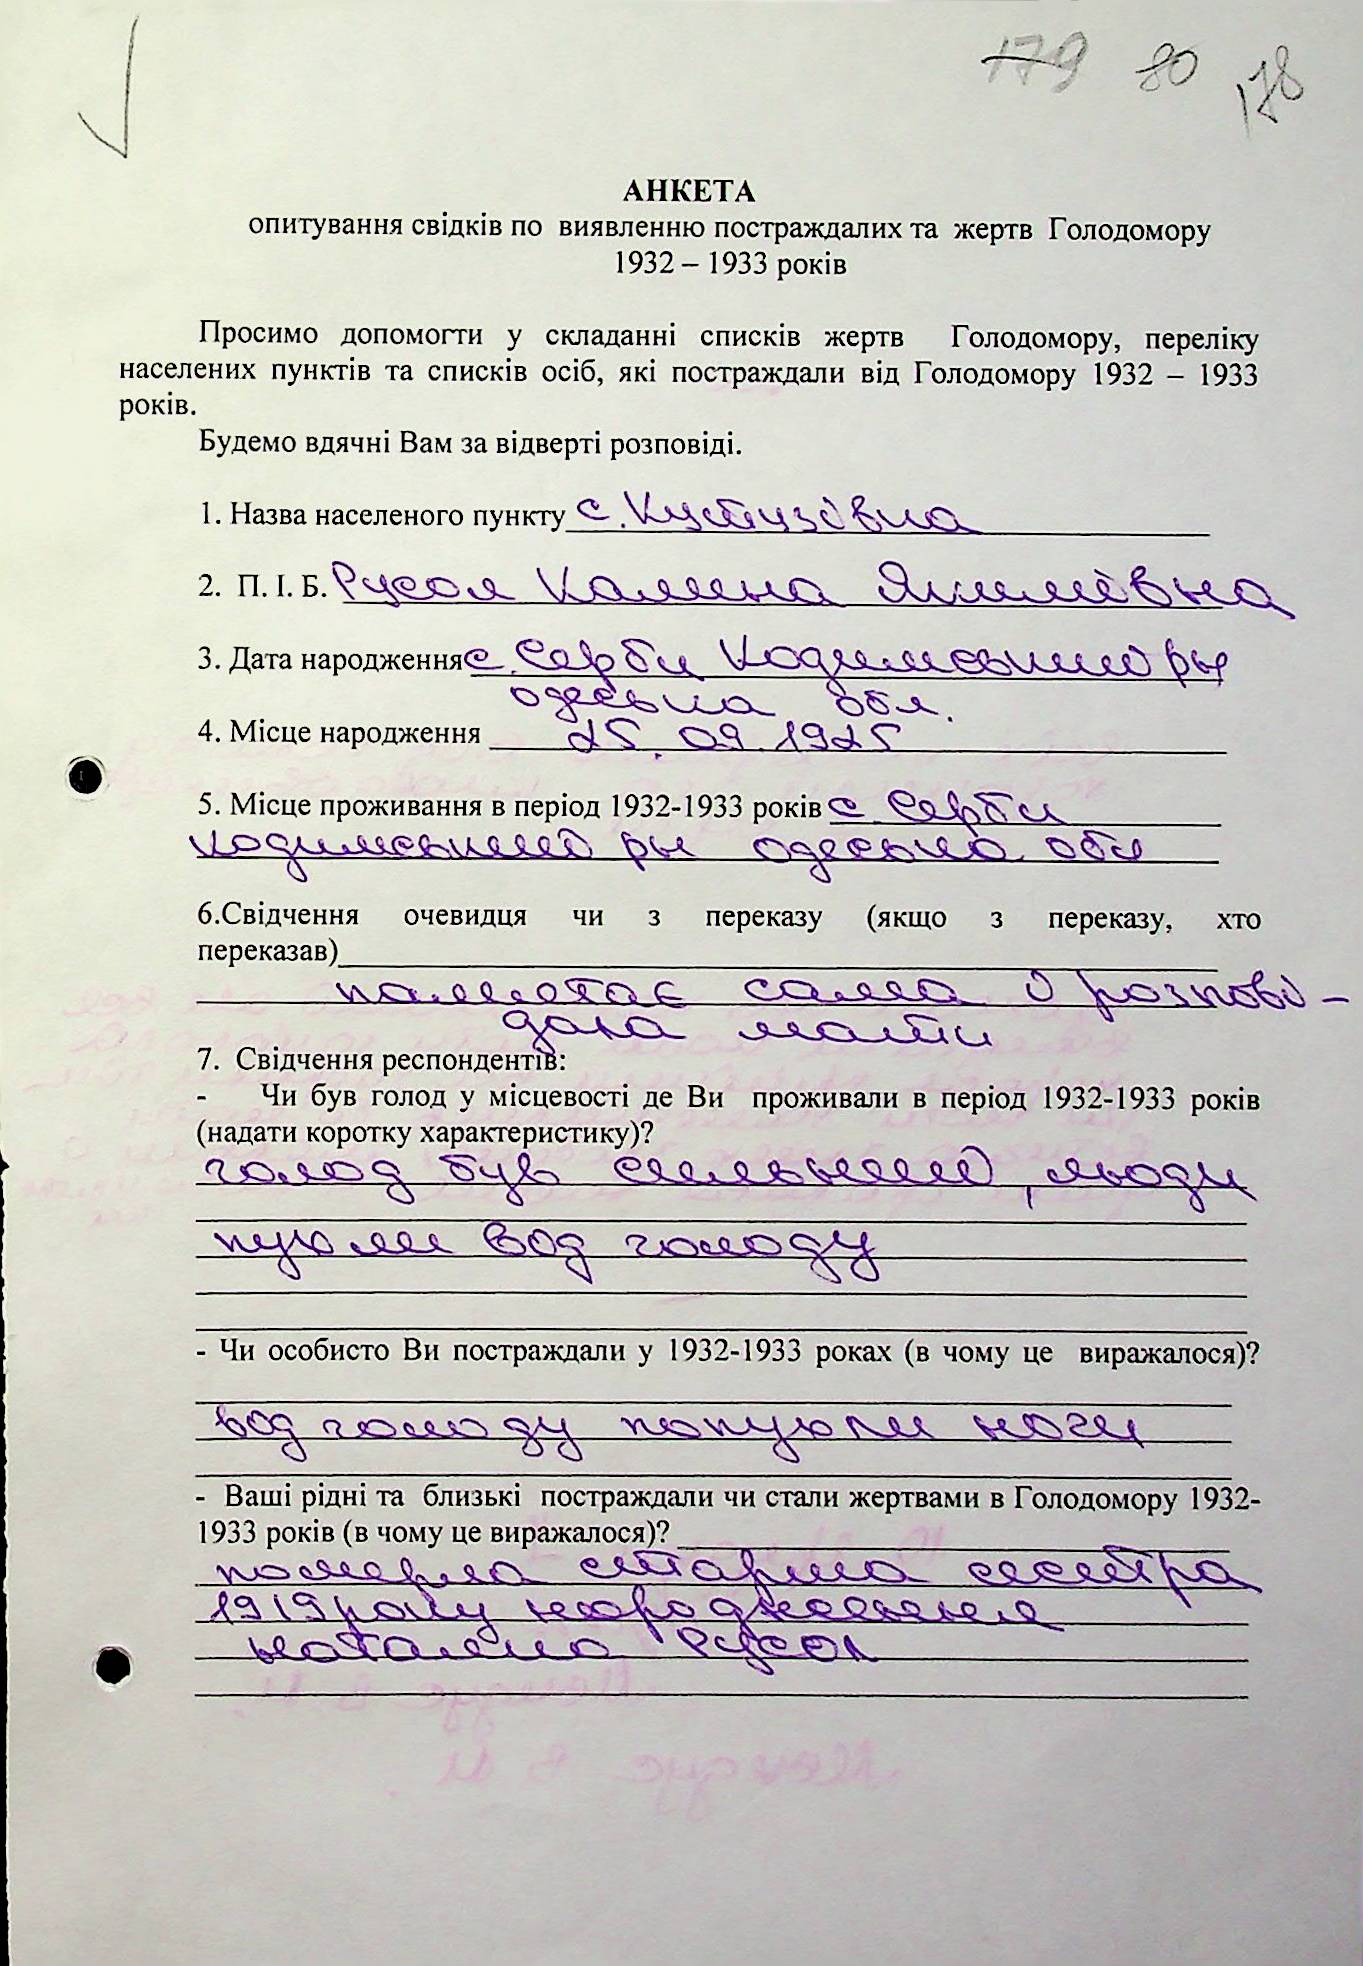 179 80 178
АНКЕТА
опитування свідків по виявленню постраждалих та жертв Голодомору
1932 – 1933 років
Просимо допомогти у складанні списків жертв Голодомору, переліку
населених пунктів та списків осіб, які постраждали від Голодомору 1932 – 1933
років.
Будемо вдячні Вам за відверті розповіді.
1. Назва населеного пункту с. Кутузівка
2. П. І. Б. Русол Калина Якимівна
3. Дата народження с. Серби Кодимський р-н
одеська обл.
4. Місце народження 25.09.1925
5. Місце проживання в період 1932-1933 років с Серби
Кодимський р-н одеська обл
6.Свідчення очевидця чи з переказу (якщо з переказу, хто
переказав)
памятає сама і розпові-
дала мати
7. Свідчення респондентів:
- Чи був голод у місцевості де Ви проживали в період 1932-1933 років
(надати коротку характеристику)?
голод був сильний, люди
пухли від голоду
- Чи особисто Ви постраждали у 1932-1933 роках (в чому це виражалося)?
від голоду попухли ноги
- Ваші рідні та близькі постраждали чи стали жертвами в Голодомору 1932-
1933 років (в чому це виражалося)?
померла старша сестра
1919 року народження
наталка Русол